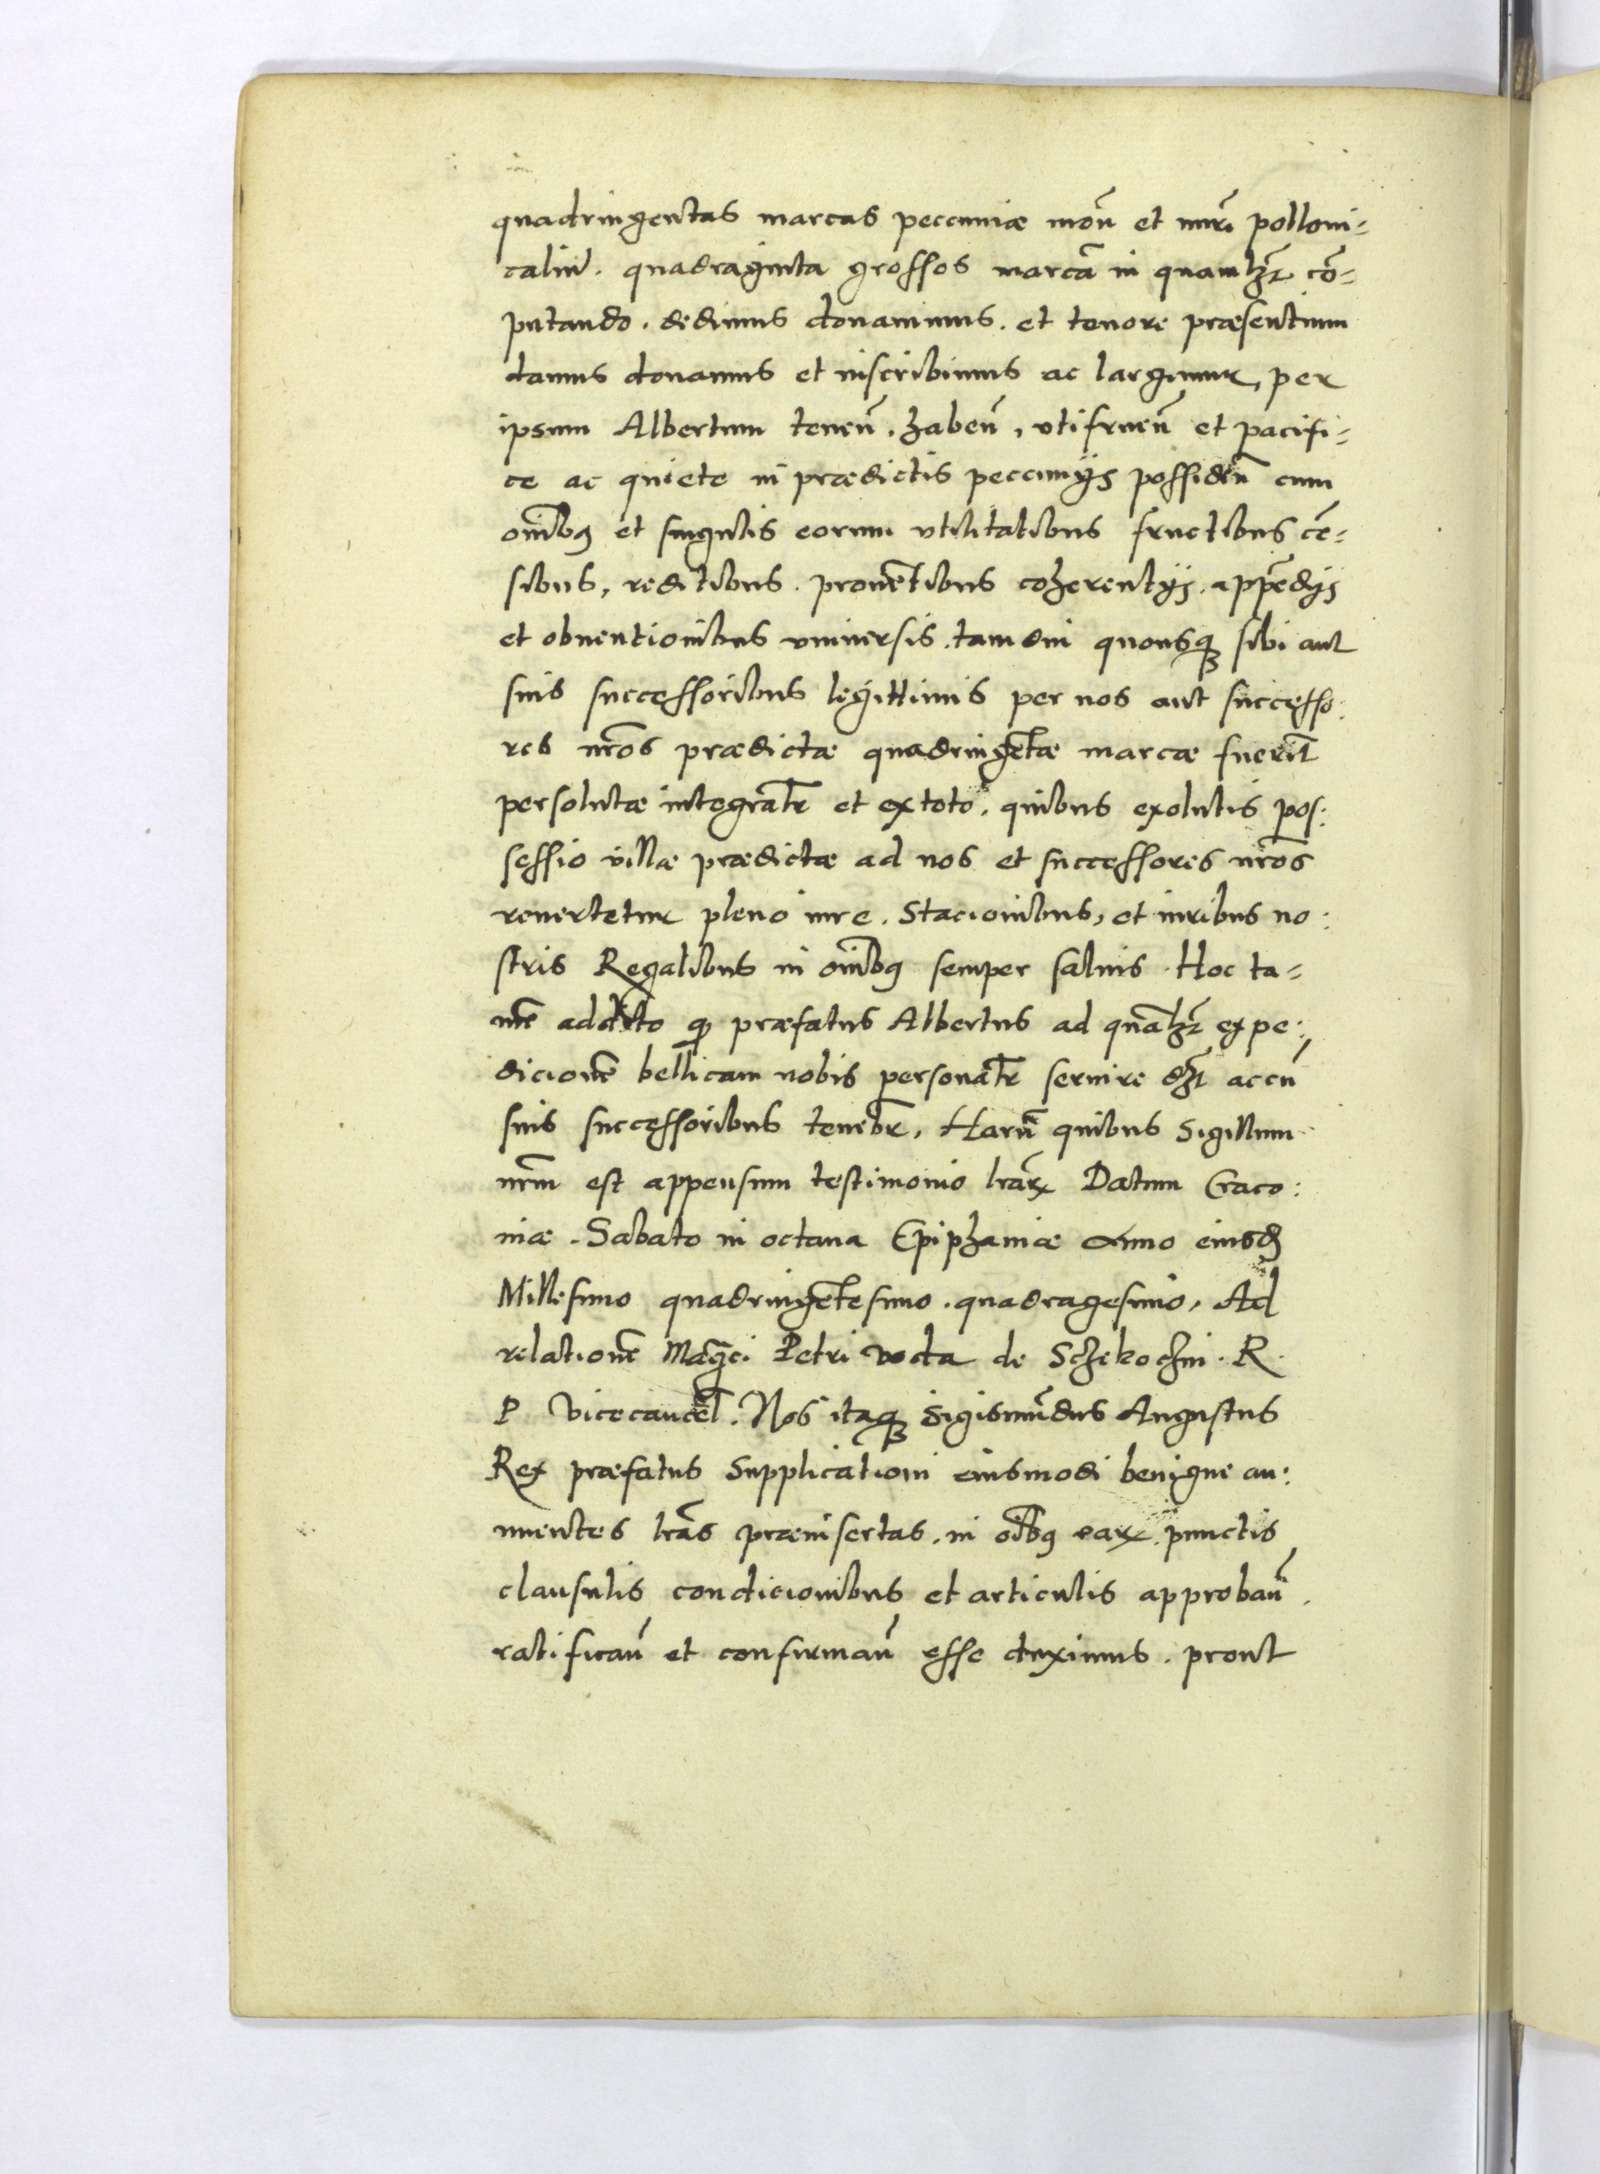 quadringentas marcas peccuniæ moñ et nuri polloni=
calium. quadraginta grossos marcā in quamlȝt cō=
putando. dedimus donauimus. et tenore præsentium
damus donamus et inscribimus ac largimur, per
ipsum Albertum teneñ. habeñ, vtifrueñ et pacifi=
ce ac quiete in prædictis peccunijs possideñ cum
oīnibꝯ et singulis eorum vtilitatibus fructibus cē=
sibus, reditibus. prouētibus coherentijs. appēdijs
et obuentionibus vniuersis. tamdiu quousqꝫ sibi aut
suis successoribus legittimis per nos aut successo:
res nr̄os prædictæ quadringētæ marcæ fuerīt
persolutæ integralr̄ et ex toto. quibus exolutis pos:
sessio villæ prædictæ ad nos et successores nr̄os
reuertetur pleno iure. Stacionibus, et iuribus no:
stris Regalibus in oīnibꝯ semper saluis. Hoc ta=
mē addito qͻ præfatus Albertus ad quālȝt expe:
dicionē bellicam nobis personalr̄ seruire dȝt ac cū
suis successoribus tenebr̄, Harū quibus Sigillum
nrm̄ est appensum testimonio lrāꝝ Datum Craco:
uiæ. Sabato in octaua Epiphaniæ Anno eiusdē
Millesimo quadringētesimo. quadragesimo, Ad
relationē Mag̃ci Petri vocta de Schekochin. R.
P Vicecancel̄. Nos itaqꝫ Sigismūdus Augustus
Rex præfatus Supplicationi eiusmodi benigne an:
nuentes lrās præinsertas. in oībꝯ eaꝝ. punctis
clausulis condicionibus et articulis approbañ.
ratificañ et confirmañ esse duximus. prout